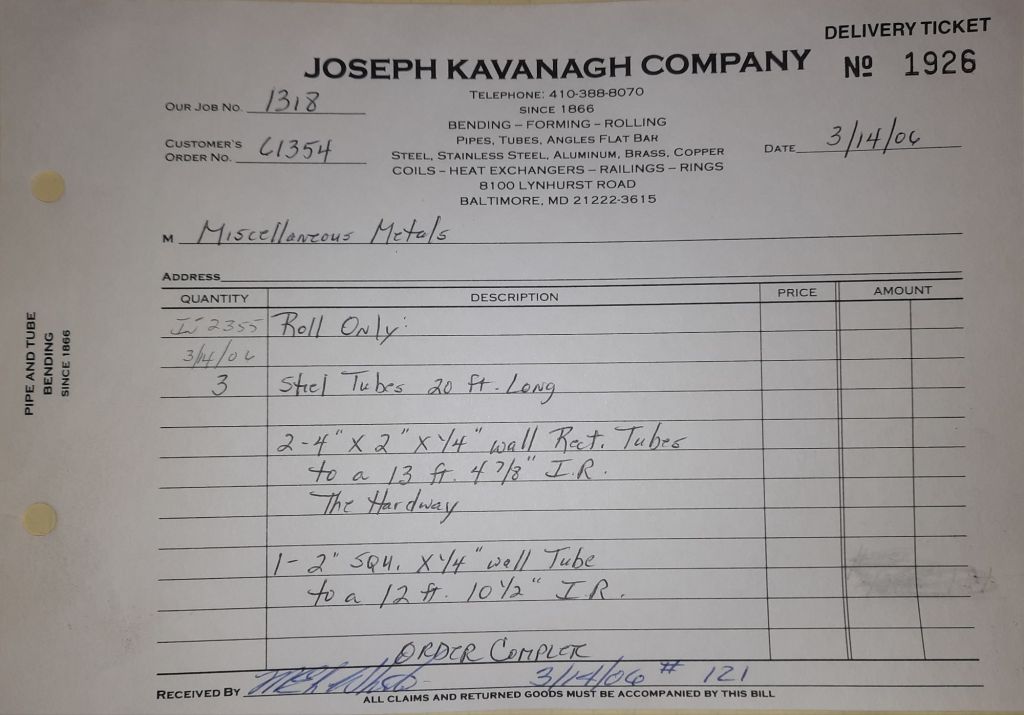 DELIVERY TICKET
JOSEPH KAVANAGH COMPANY
Nº 1926
TELEPHONE: 410-388-8070
SINCE 1866
BENDING – FORMING – ROLLING
PIPES, TUBES, ANGLES FLAT BAR
STEEL, STAINLESS STEEL, ALUMINUM, BRASS, COPPER
COILS – HEAT EXCHANGERS – RAILINGS – RINGS
8100 LYNHURST ROAD
BALTIMORE, MD 21222-3615
OUR JOB NO. 1318
CUSTOMER'S
ORDER NO. 61354
DATE 3/14/06
M Miscellaneous Metals
ADDRESS
QUANTITY DESCRIPTION PRICE AMOUNT
2355 Roll Only:
3/14/06
3 Steel Tubes 20 ft. Long
2-4" X 2" X 1/4" wall Rect. Tubes
to a 13 ft. 4 7/8" I.R.
The Hardway
1- 2" SQU. X 1/4" wall Tube
to a 12 ft. 10 1/2" I.R.
ORDER COMPLETE
RECEIVED BY 3/14/06 # 121
ALL CLAIMS AND RETURNED GOODS MUST BE ACCOMPANIED BY THIS BILL
PIPE AND TUBE
BENDING
SINCE 1866